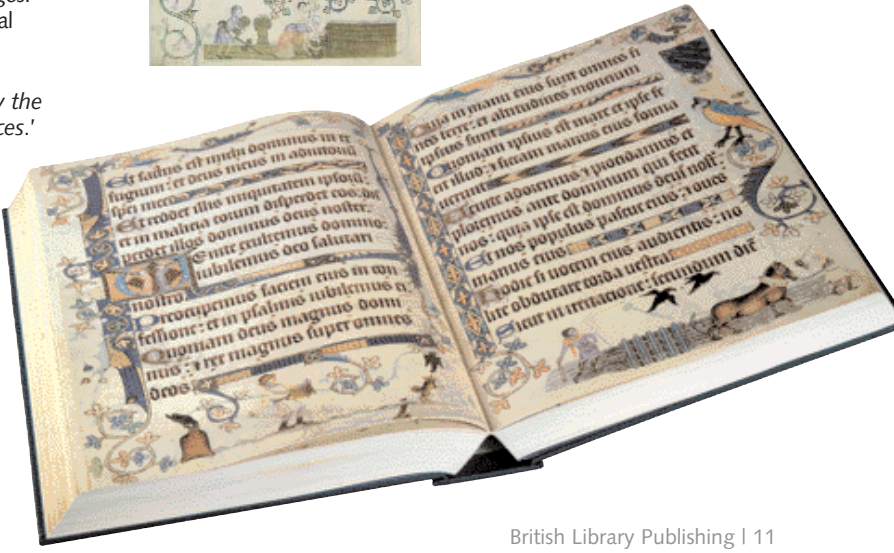 ges.
al
y the
ces.'
Et factus est michi dominus in re
fugium : et deus meus in adiutoriu
spei mee
Et reddet illis iniquitatem ipsoru :
et in malicia eorum disperdet eos : dis
perdet illos dominus deus noster .
Venite exultemus domino :
iubilemus deo salutari
nostro
Preocupemus faciem eius in con
fessione : et in psalmis iubilemus ei
Quoniam deus magnus domi
nus : & rex magnus super omnes
deos
Quia in manu eius sunt omnes fi
nes terre : et altitudines moncium
ipsius sunt
Quoniam ipsius est mare et ipse fe
cit illud : & siccam manus eius forma
uerunt
Uenite adoremus & procidamus et
ploremus ante dominum qui fecit
nos : quia ipse est dominus deus nost :
Et nos populus pascue eius : & oues
manus eius
Hodie si uocem eius audieritis : no
lite obdurare corda uestra
Sicut in irritacione : secundum die
British Library Publishing | 11